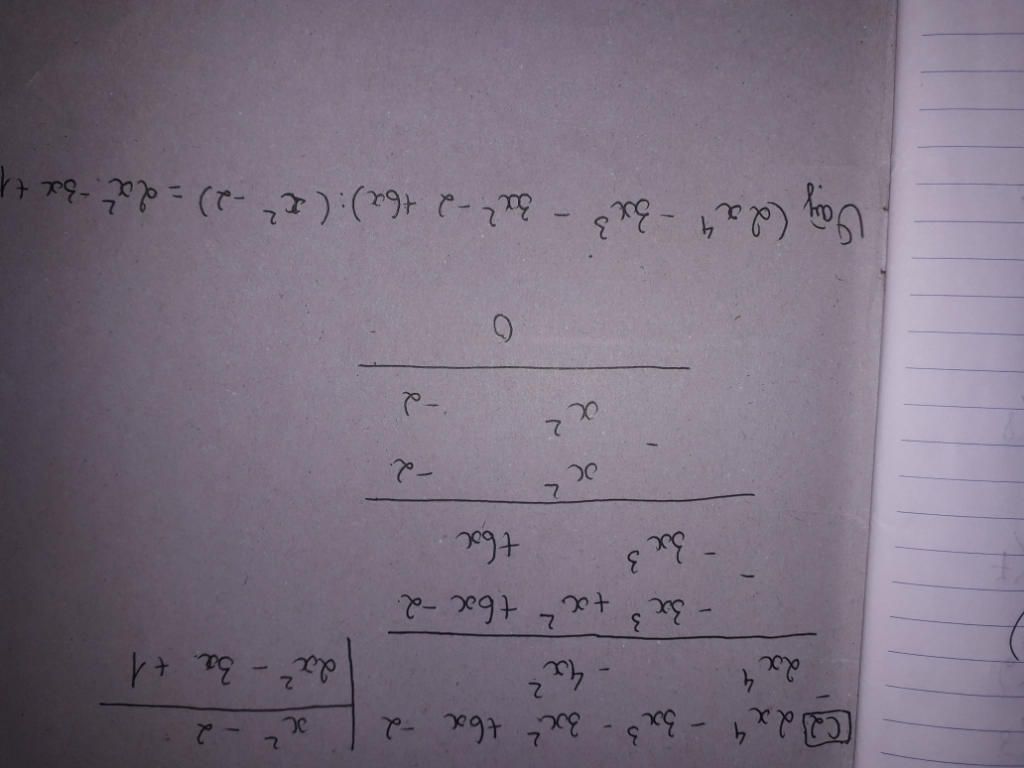 C2 2x⁴ - 3x³ - 3x² + 6x - 2 | x² - 2
- 2x⁴ - 4x² | 2x² - 3x + 1
- 3x³ + x² + 6x - 2
- - 3x³ + 6x
x² - 2
- x² - 2
0
Vậy (2x⁴ - 3x³ - 3x² - 2 + 6x) : (x² - 2) = 2x² - 3x + 1